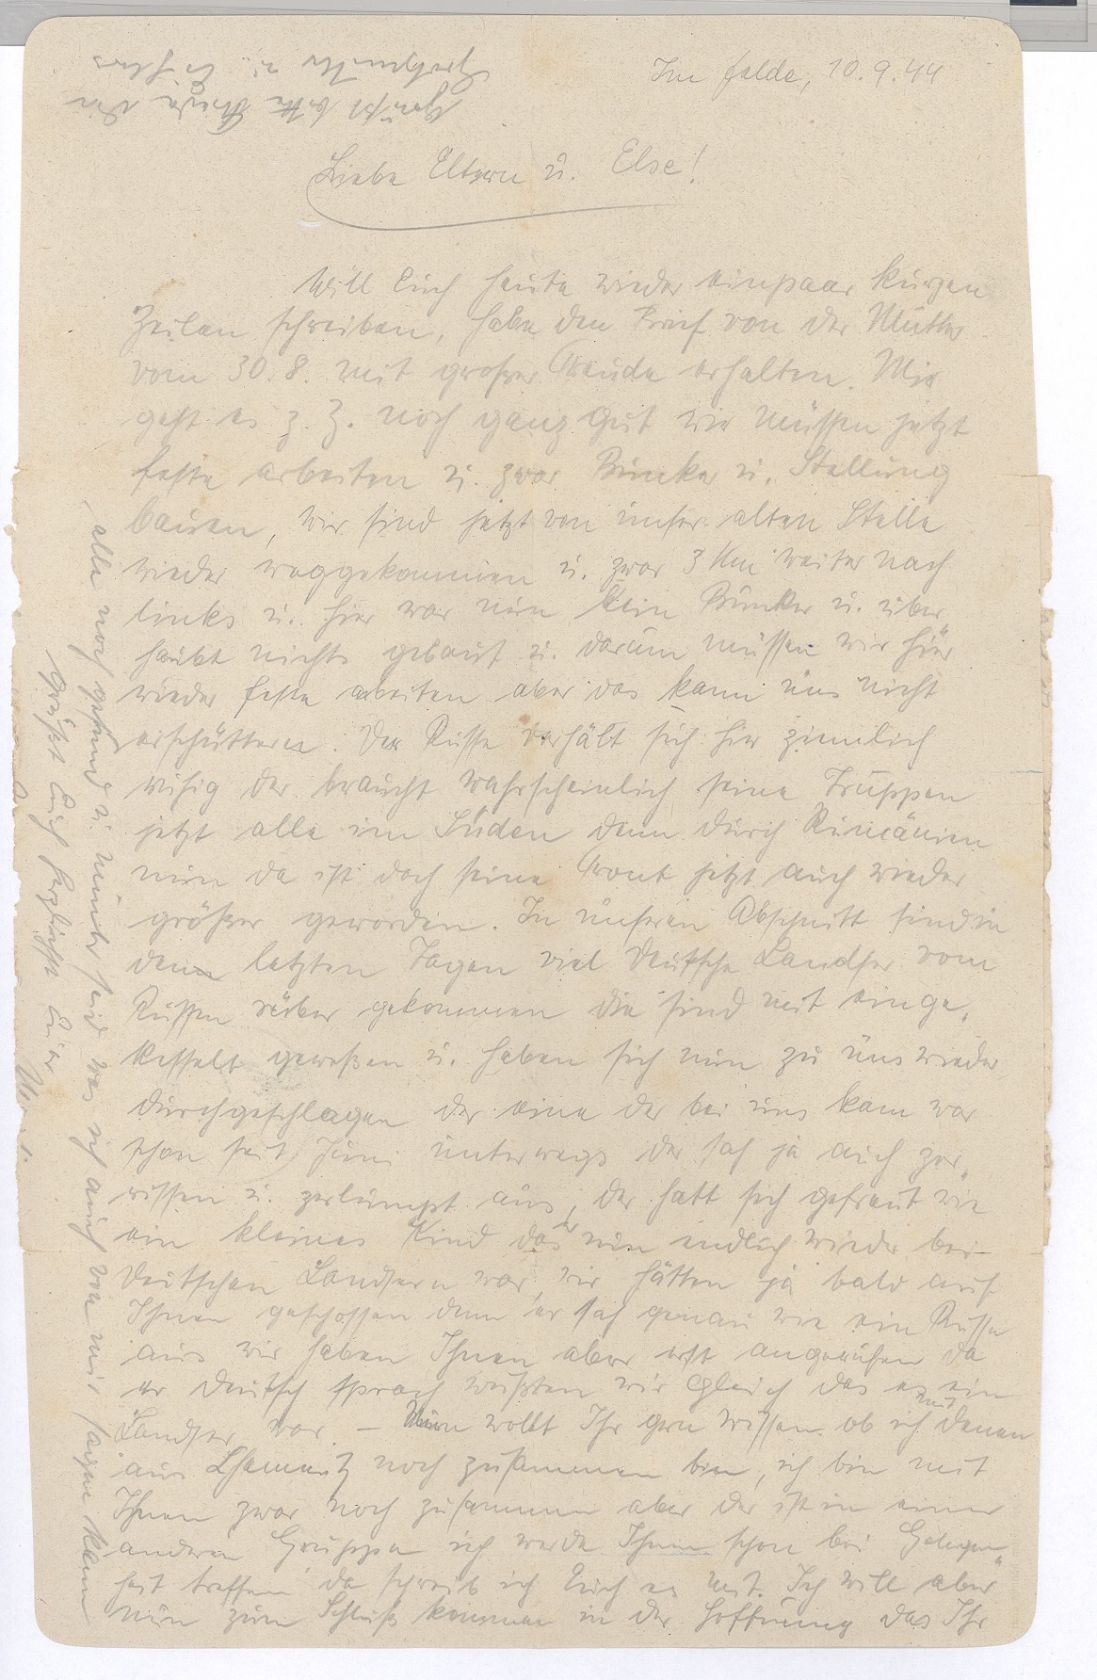 Im Felde, 10.9.44
Liebe Eltern u. Else!
Will Euch heute wieder einpaar kurzen
Zeilen schreiben, habe den Brief von der Mutter
vom 30.8. mit großer Freude erhalten. Mir
geht es z. Z. noch ganz Gut wir müssen jetzt
feste arbeiten u. zwar Bunker u. Stellung
bauen, wir sind jetzt von unser alten Stelle
wieder weggekommen u. zwar 3 Km weiter nach
links u. hier war nun kein Bunker u. über-
haubt nichts gebaut u. darum müssen wir hier
wieder feste arbeiten aber das kann uns nicht
erschüttern. Der Russe verhält sich hier ziemlich
ruhig der braucht wahrscheinlich seine Truppen
jetzt alle im Süden denn durch Rumänien
nun da ist doch seine Front jetzt auch wieder
größer geworden. In unseren Abschnitt sind in
den letzten Tagen viel deutsche Landser vom
Russen rüber gekommen die sind mit einge-
kesselt geweßen u. haben sich nun zu uns wieder
durchgeschlagen der eine der bei uns kam war
schon seit Juni unterwegs der sah ja auch zer-
rissen u. zerlumpt aus, der hatt sich gefreut wie
ein kleines Kind das er nun endlich wieder bei
deutschen Landsern war, wir hätten ja bald auf
Ihnen geschossen denn er sah genau wie ein Russe
aus wir haben Ihnen aber erst angerufen da
er deutsch sprach wußten wir gleich das es ein
Landser war – Nun wollt Ihr gern wissen ob ich mit denen
aus Chemnitz noch zusammen bin, ich bin mit
Ihnen zwar noch zusammen aber der ist in einer
anderen Gruppe ich werde Ihnen schon bei Gelegen-
heit treffen da schreib ich Euch es mit. Ich will aber
nun zum Schluß kommen in der Hoffnung das Ihr
alle noch gesund u. munter seid was ich auch von mir sagen kann
Grüßt Euch herzlichst Euer
Grüßt bitte die
Großmutter u.